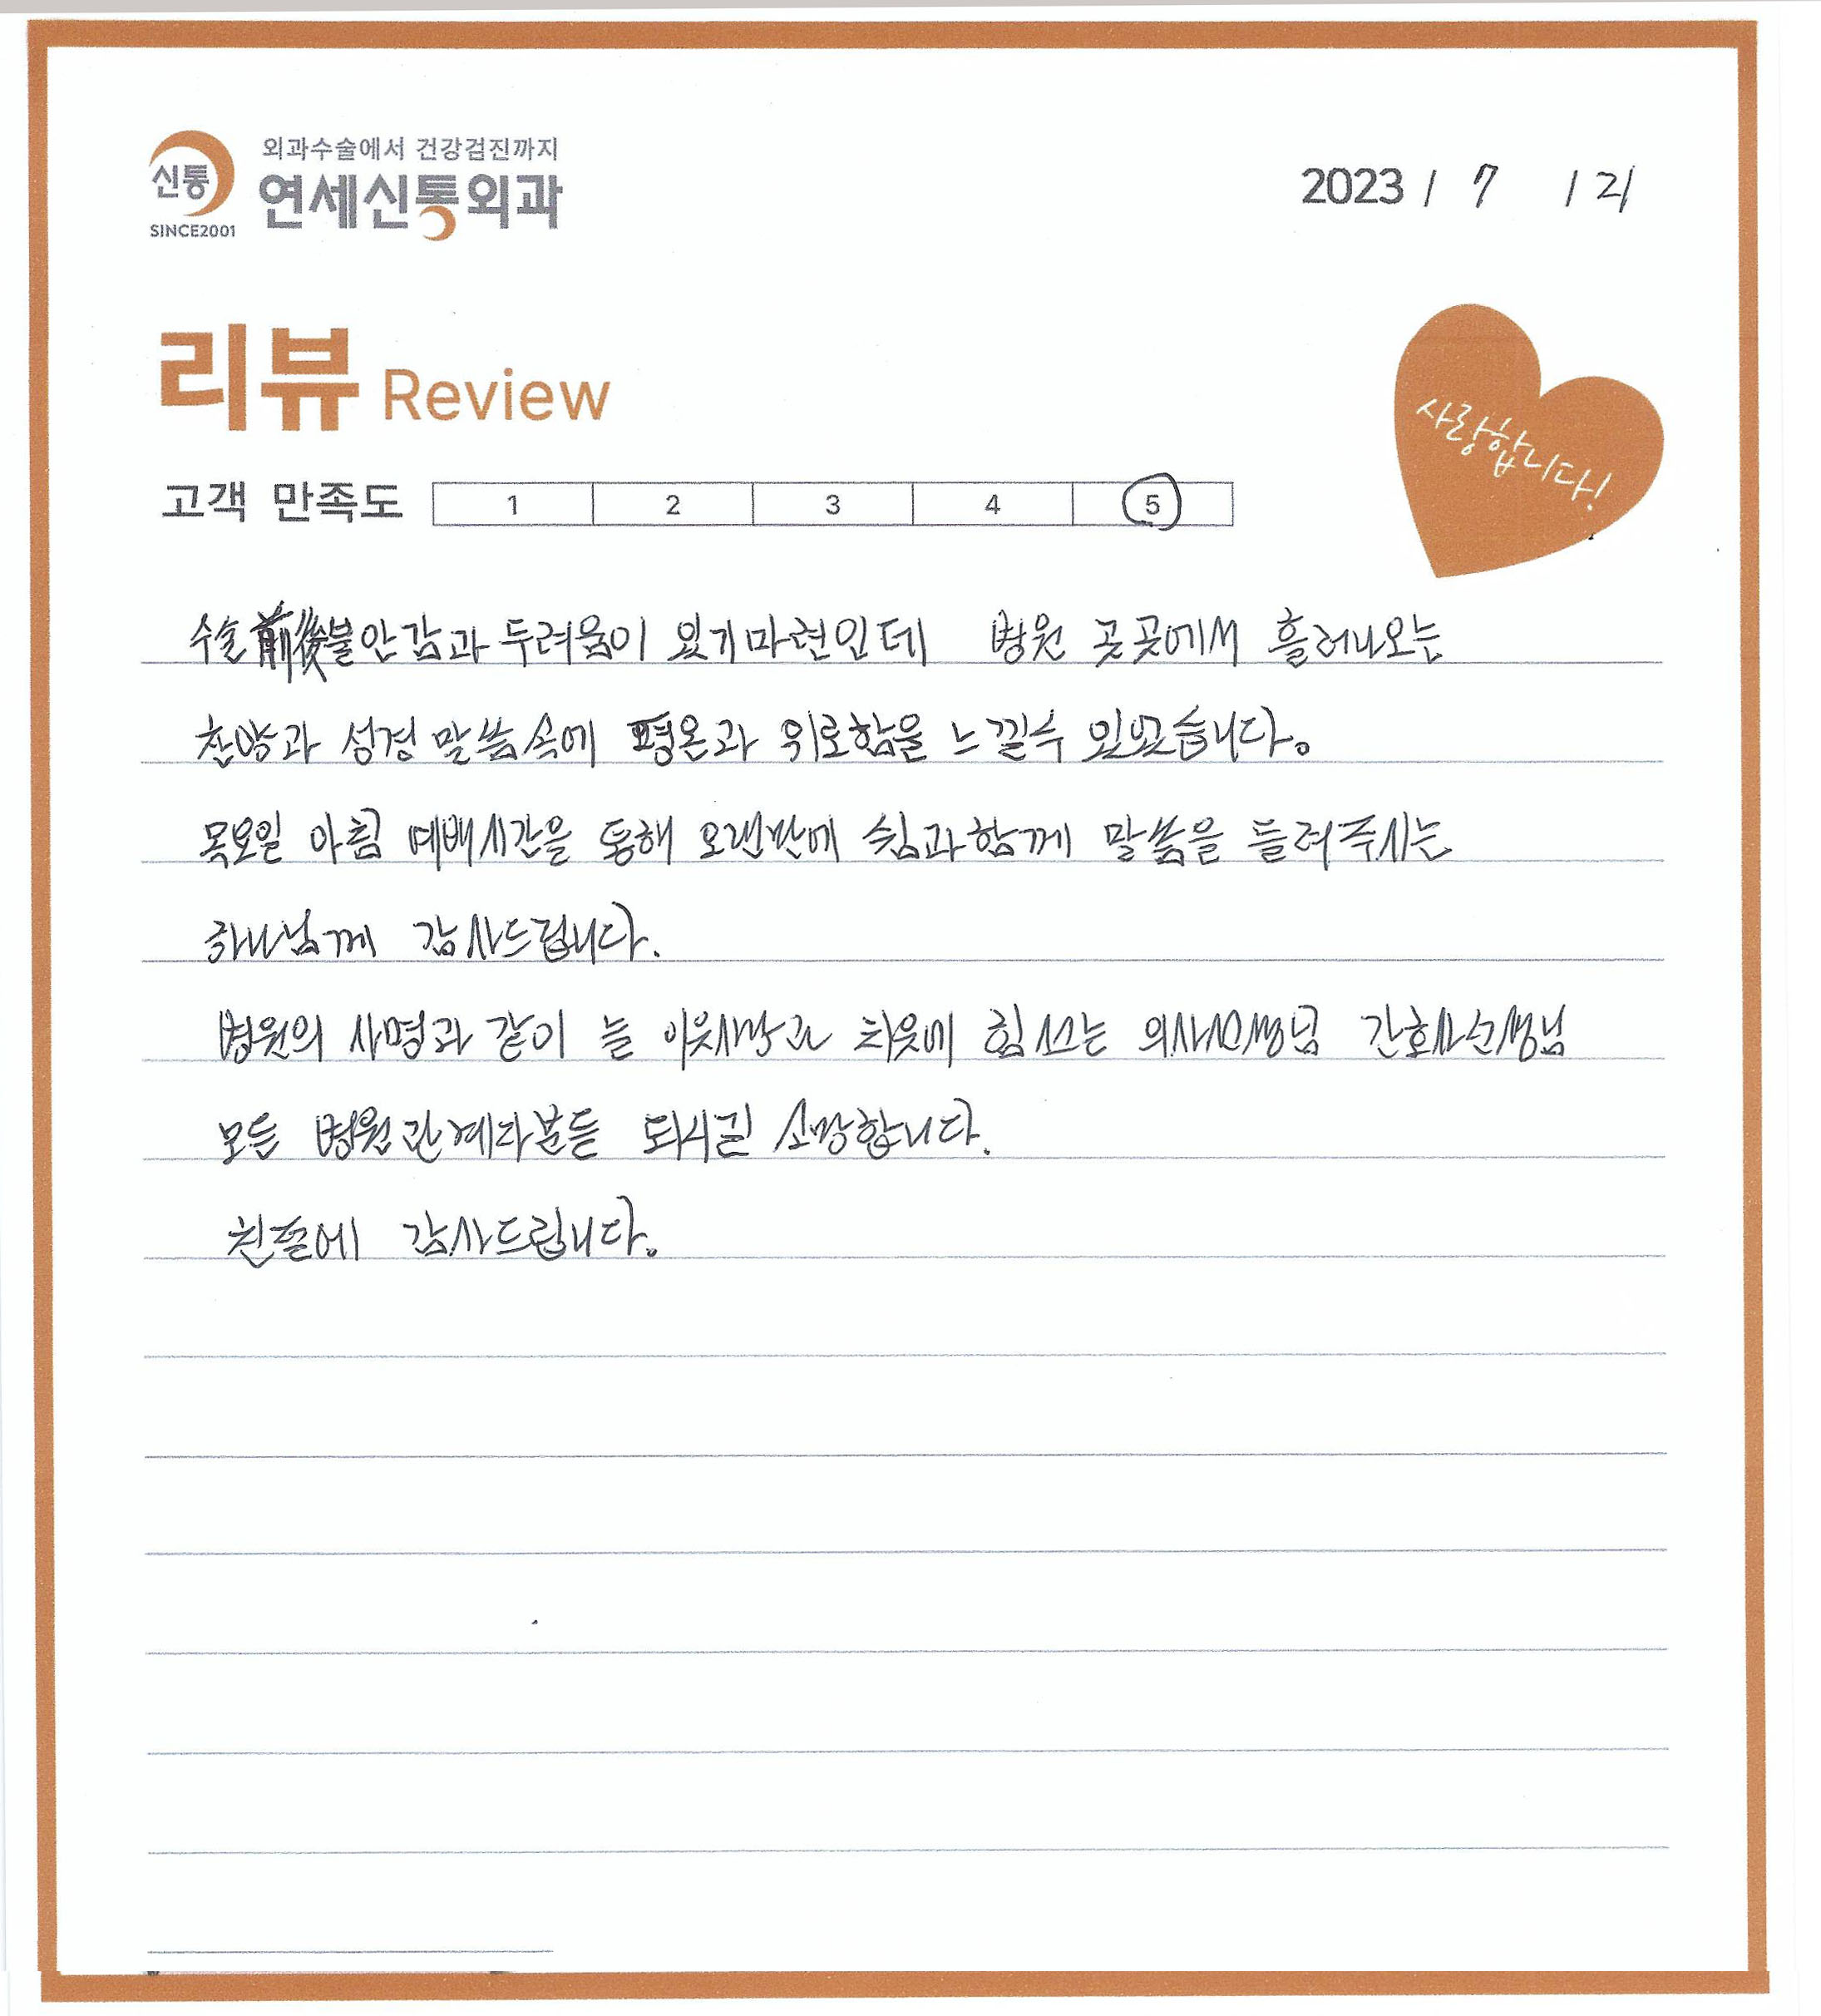 외과수술에서 건강검진까지
신통
연세신통외과
SINCE2001
2023 / 7 / 21
리뷰 Review
사랑합니다!
고객 만족도 1 2 3 4 5
수술 前後불안감과 두려움이 있기마련인데 병원 곳곳에서 흘러나오는
찬양과 성경 말씀속에 평온과 위로함을 느낄수 있었습니다.
목요일 아침 예배시간을 통해 오랜만에 쉼과함께 말씀을 들려주시는
하나님께 감사드립니다.
병원의 사명과 같이 늘 이웃사랑과 치유에 힘쓰는 의사선생님 간호사선생님
모든 병원관계자분들 되시길 소망합니다.
친절에 감사드립니다.